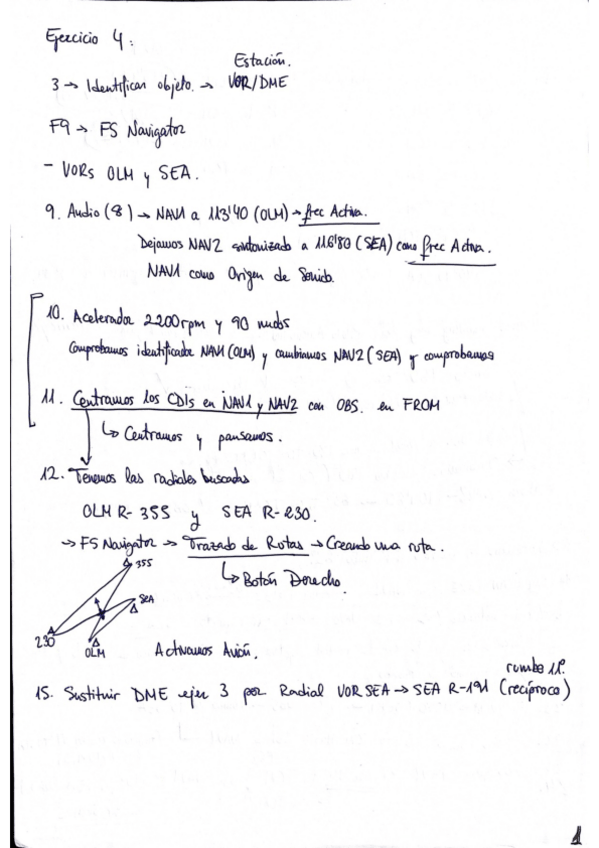 Ejercicio 4:
Estación.
3 → Identificar objeto. → VOR/DME
F9 → FS Navigator
- VORs OLM y SEA.
9. Audio (8) → NAV1 a 113'40 (OLM) → frec Activa.
Dejamos NAV2 sintonizado a 116'80 (SEA) como frec Activa.
NAV1 como Origen de Sonido.
10. Acelerador 2200rpm y 90 nudos
Comprobamos identificador NAV1 (OLM) y cambiamos NAV2 (SEA) y comprobamos
11. Centramos los CDIs en NAV1 y NAV2 con OBS. en FROM
↳ Centramos y pausamos.
12. Tenemos las radiales buscadas
OLM R-355 y SEA R-230.
→ FS Navigator → Trazado de Rotas → Creando una ruta.
↳ Botón Derecho.
355
SEA
230
OLM
Activamos Avión.
rumbo 11º.
15. Sustituir DME ejer 3 por Radial VOR SEA → SEA R-191 (recíproco)
1